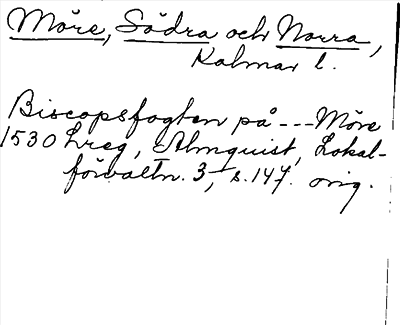 Möre, Södra och Norra,
Kalmar l.
Biscopsfogten på --- Möre
1530 Lreg, Almquist, Lokal-
förvaltn. 3, s. 147. orig.